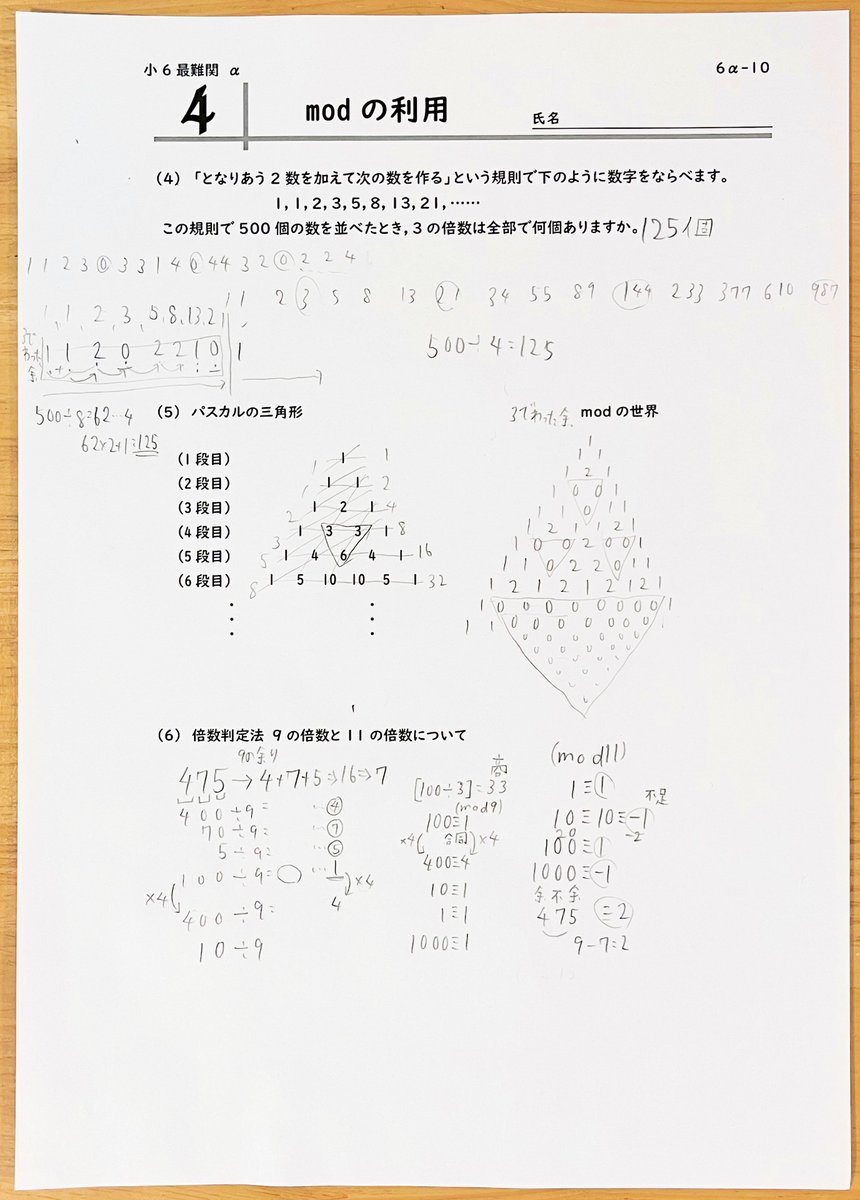 小6最難関 α
6α-10
4
modの利用
氏名
(4) 「となりあう2数を加えて次の数を作る」という規則で下のように数字をならべます。
1, 1, 2, 3, 5, 8, 13, 21, ……
この規則で500個の数を並べたとき, 3の倍数は全部で何個ありますか。 125個
1 1 2 3 0 3 3 1 4 0 4 4 3 2 0 2 2 4
1 1 2 3 5 8 13 21 34 55 89 144 233 377 610 987
1, 1, 2, 3, 5, 8, 13, 21
3でわった余
1 1 2 0 2 2 1 0 1
500÷4=125
500÷8=62…4
62×2+1=125
(5) パスカルの三角形
3でわった余 modの世界
(1段目) 1 1
(2段目) 1 1 2
(3段目) 1 2 1 4
(4段目) 1 3 3 1 8
(5段目) 1 4 6 4 1 16
(6段目) 1 5 10 10 5 1 32
1 1 2 3 5 8
1
1 1
1 2 1
1 0 0 1
1 1 0 1 1
1 2 1 1 2 1
1 0 0 2 0 0 1
1 1 0 2 2 0 1 1
1 2 1 2 1 2 1 2 1
1 0 0 0 0 0 0 0 0 1
1 1 0 0 0 0 0 0 0
(6) 倍数判定法 9の倍数と11の倍数について
9の余り
475→4+7+5⇒16⇒7
400÷9= …④
70÷9= …⑦
5÷9= …⑤
100÷9=○ …1
×4 ×4
400÷9= 4
10÷9
商
[100÷3]=33
(mod9)
100≡1
×4 合同 ×4
400≡4
10≡1
1≡1
1000≡1
(mod11)
1≡1
不足
10≡10≡-1
20 -2
100≡1
1000≡-1
余不余
475≡2
9-7=2